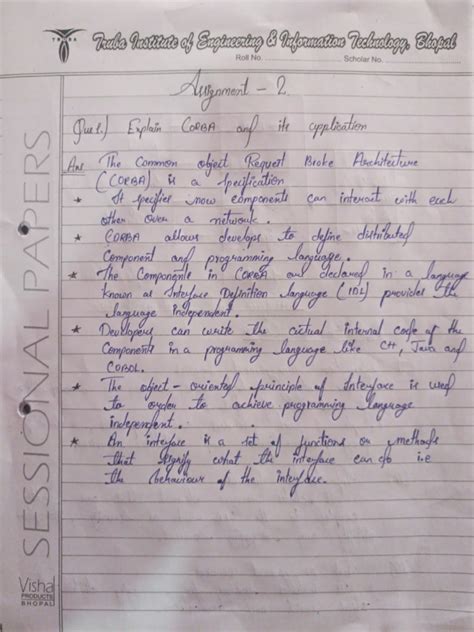 TRUBA
Truba Institute of Engineering & Information Technology, Bhopal
Roll No. Scholar No.
Assignment - 2
Que 1.) Explain CORBA and its application
Ans The Common object Request Broke Architecture
(CORBA) is a specification
* It specifies now components can interact with each
other over a network.
* CORBA allows develops to define distributed
Component and programming language.
* The Components in CORBA are declared in a language
known as Interface Definition language (IDL) provides the
language independent.
* Developers can write the actual internal code of the
Components in a programming language like C++, Java and
COBOL.
* The object - oriented principle of Interface is used
to order to achieve programming language
independent.
* An interface is a set of functions or methods
that signify what the interface can do i.e
the behaviour of the interface.
SESSIONAL PAPERS
Vishal
PRODUCTS
BHOPAL